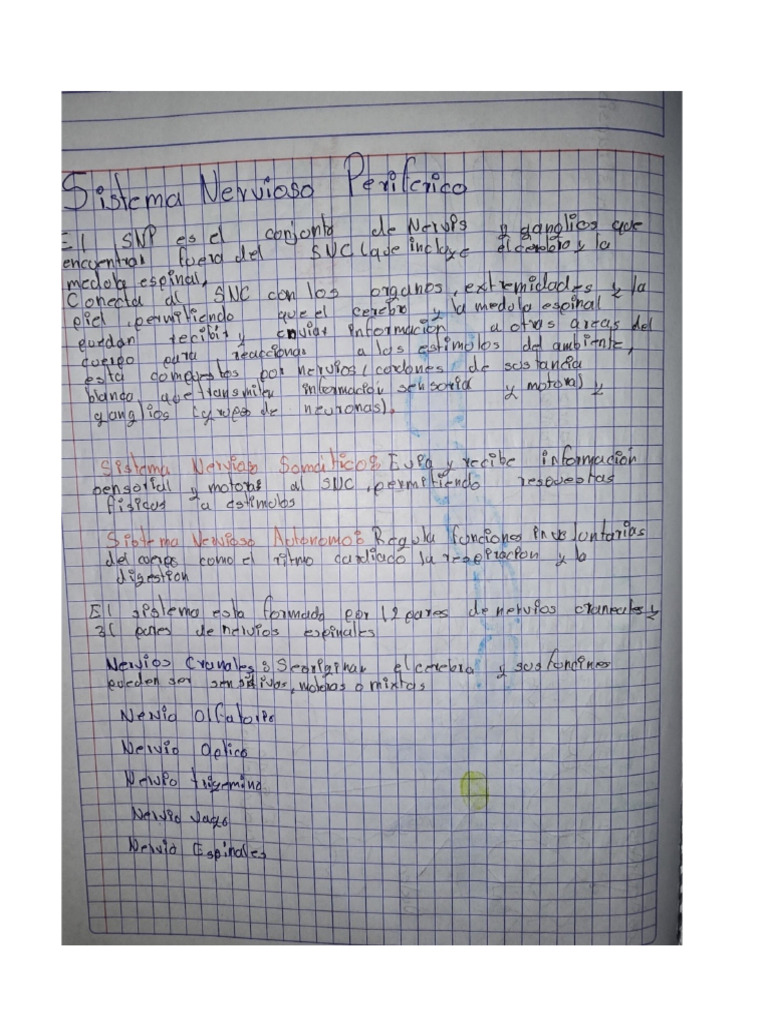 Sistema Nervioso Periferico
El SNP es el conjunto de Nervios y ganglios que
encuentran fuera del SNC (que incluye el cerebro y la
medola espinal,
Conecta al SNC con los organos, extremidades y la
piel, permitiendo que el cerebro y la medola espinal
puedan recibir y enviar informacion a otras areas del
cuerpo para reaccionar a los estimolos del ambiente,
esta compuestos por nervios (cordones de sustancia
blanca, que transmiten informacion sensoria y motora) y
ganglios (grupos de neuronas).
Sistema Nervioso Somático: Evia y recibe informacion
sensorial y motoras al SNC, permitiendo respuestas
fisicas a estimolos
Sistema Nervioso Autonomo: Regula funciones involontarias
del cuerpo como el ritmo cardiaco la respiracion y la
digestion
El sistema esta formado por 12 pares de nervios craneales y
31 pares de nervios espinales
Nervios Cranales: Se originan el cerebro y sus funciones
pueden ser sensitivos, motoras o mixtos
Nervio Olfatorio
Nervio optico
Nervio trigemino
Nervio vago
Nervio Espinales